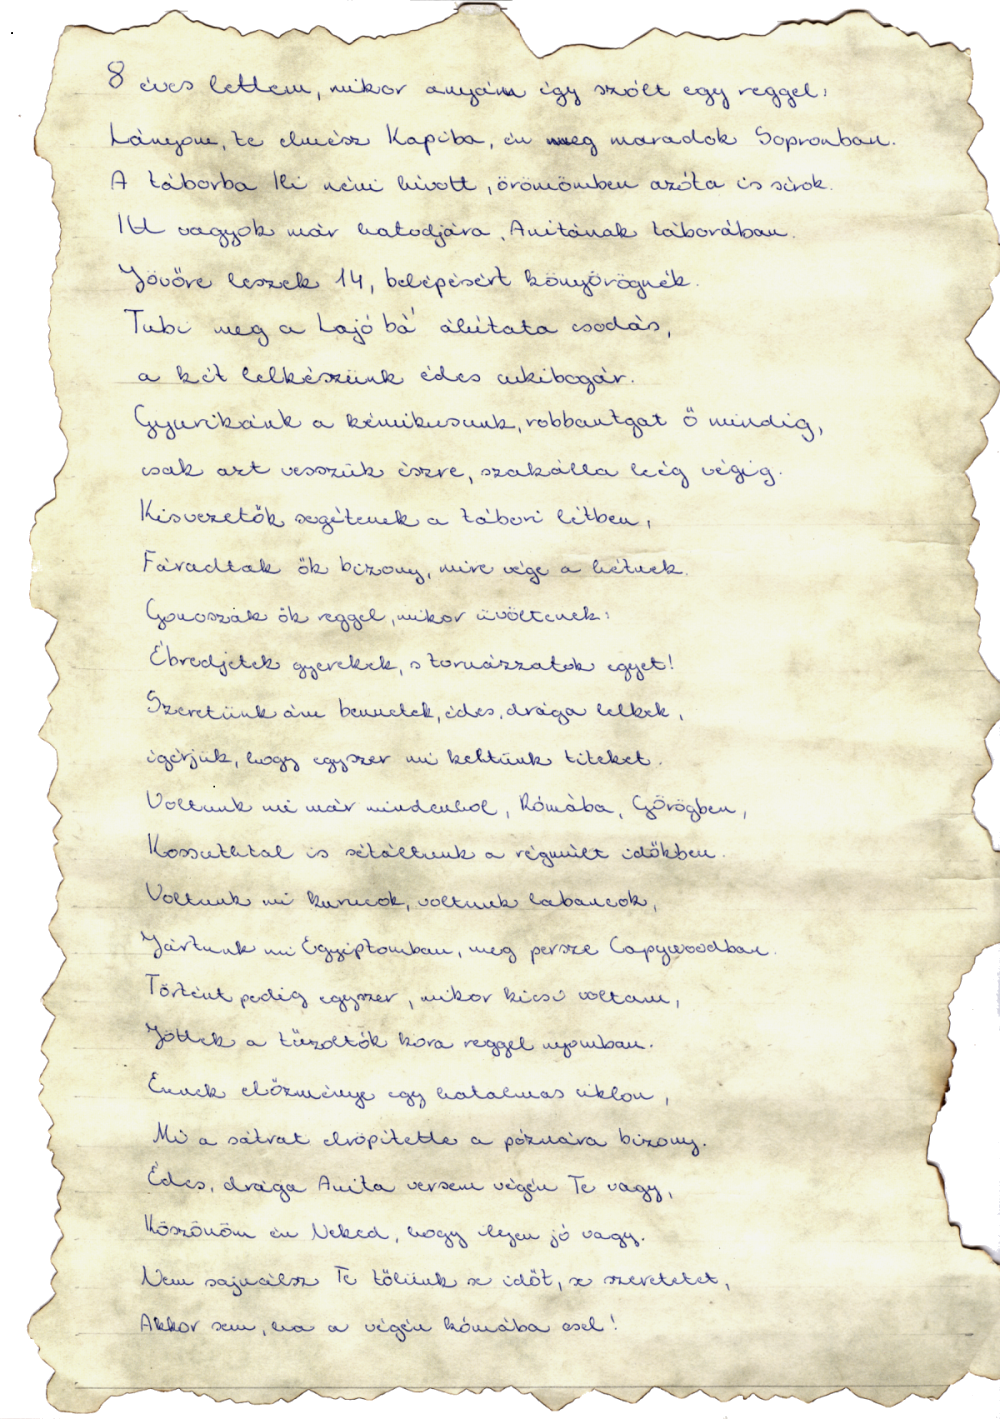 8 éves lettem, mikor anyám így szólt egy reggel:
Lányom, te elmész Kapiba, én meg maradok Sopronban.
A táborba Iki néni hívott, örömömben azóta is sírok.
Itt vagyok már hatodjára, Anitának táborában.
Jövőre leszek 14, belépésért könyörögnék.
Tubi meg a Lajó bá' áhítata csodás,
a két lelkészünk édes cukibogár.
Gyurikánk a kémikusunk, robbantgat ő mindig,
csak azt vesszük észre, szakálla leég végig.
Kisvezetők segítenek a tábori létben,
Fáradtak ők bizony, mire vége a hétnek.
Gonoszák ők reggel, mikor üvöltenek:
Ébredjetek gyerekek, s tornázzatok egyet!
Szeretünk ám bennetek, édes, drága lelkek,
ígérjük, hogy egyszer mi keltünk titeket.
Voltunk mi már mindenhol, Rómába, Görögben,
Kossuthtal is sétáltunk a régmúlt időkben.
Voltunk mi kurucok, voltunk labancok,
Jártunk mi Egyiptomban, meg persze Capywoodban.
Történt pedig egyszer, mikor kicsi voltam,
Jöttek a tűzoltók kora reggel nyomban.
Ennek előzménye egy hatalmas ciklon,
Mi a sátrat elröpítette a póznára bizony.
Édes, drága Anita versem végén Te vagy,
Köszönöm én Neked, hogy ilyen jó vagy.
Nem sajnálsz Te tőlünk se időt, se szeretetet,
Akkor sem, ha a végén kómába esel!